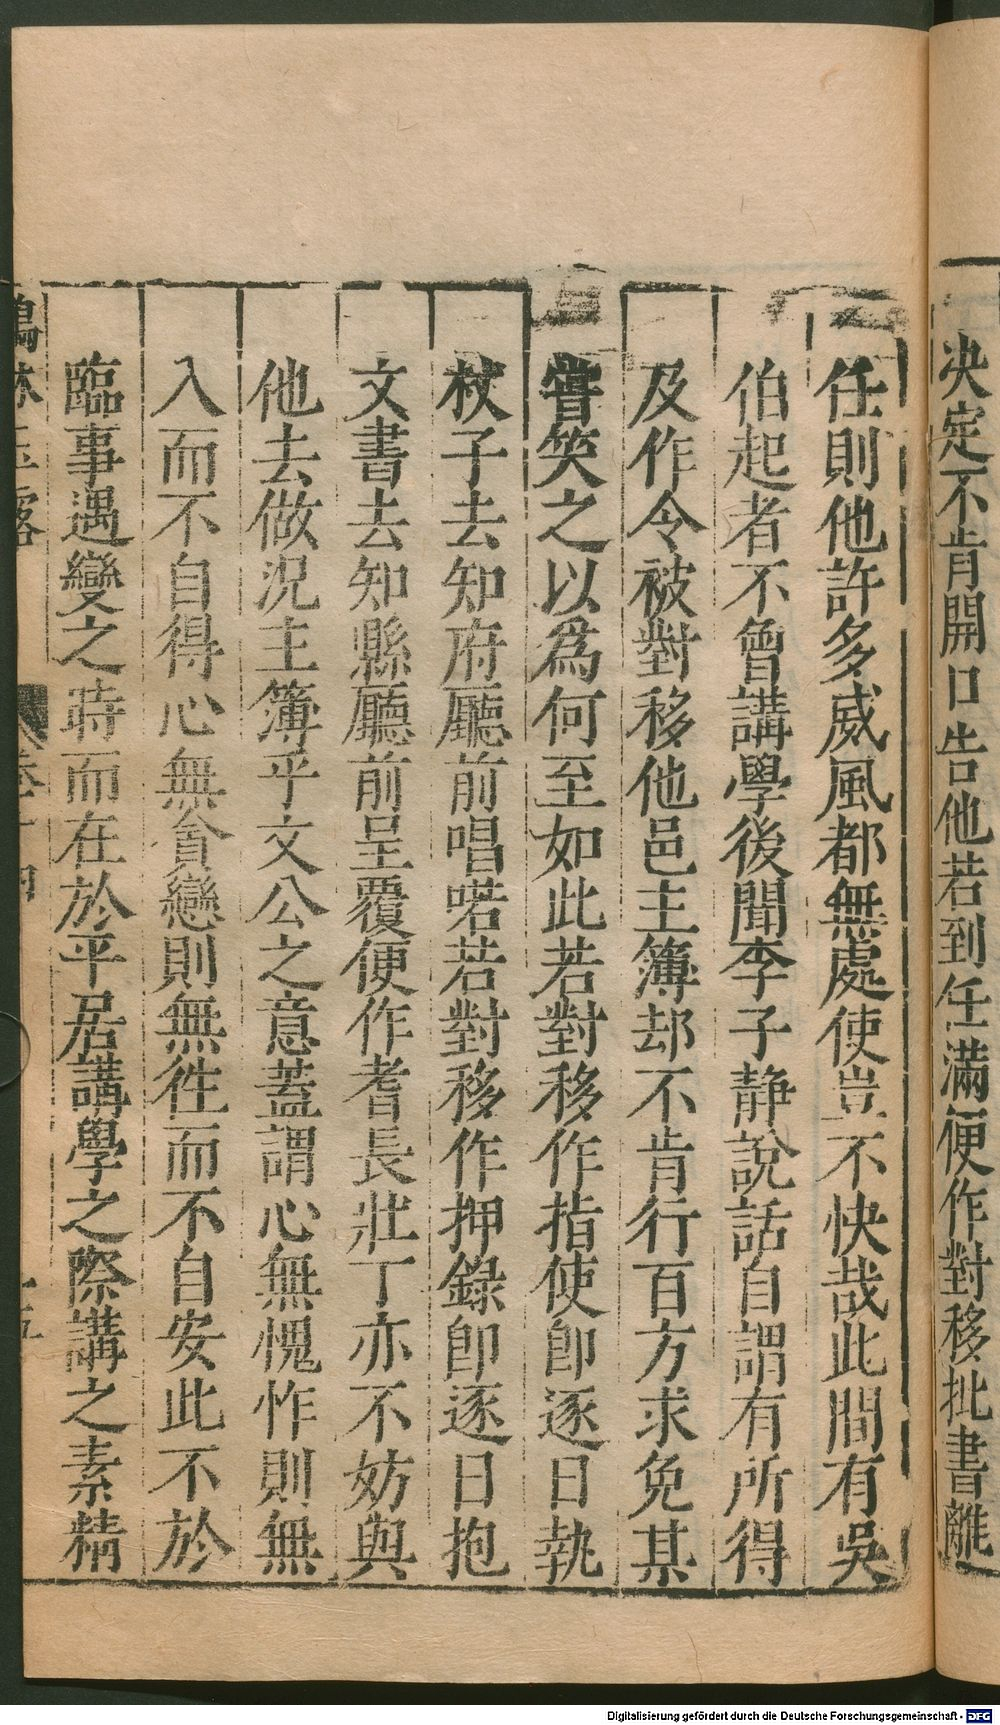 决定不肯開口告他若到任滿便作對移批書離
任則他許多威風都無處使豈不快哉此間有吳
伯起者不曾講學後聞李子靜說話自謂有所得
及作令被對移他邑主簿却不肯行百方求免某
嘗笑之以為何至如此若對移作指使即逐日執
杖子去知府廳前唱喏若對移作押錄即逐日抱
文書去知縣廳前呈覆便作耆長壯丁亦不妨與
他去做況主簿乎文公之意蓋謂心無愧怍則無
入而不自得心無貪戀則無徃而不自安此不於
臨事遇變之時而在於平居講學之際講之素精
鶴林玉露 卷十四 十五
Digitalisierung gefördert durch die Deutsche Forschungsgemeinschaft - DFG